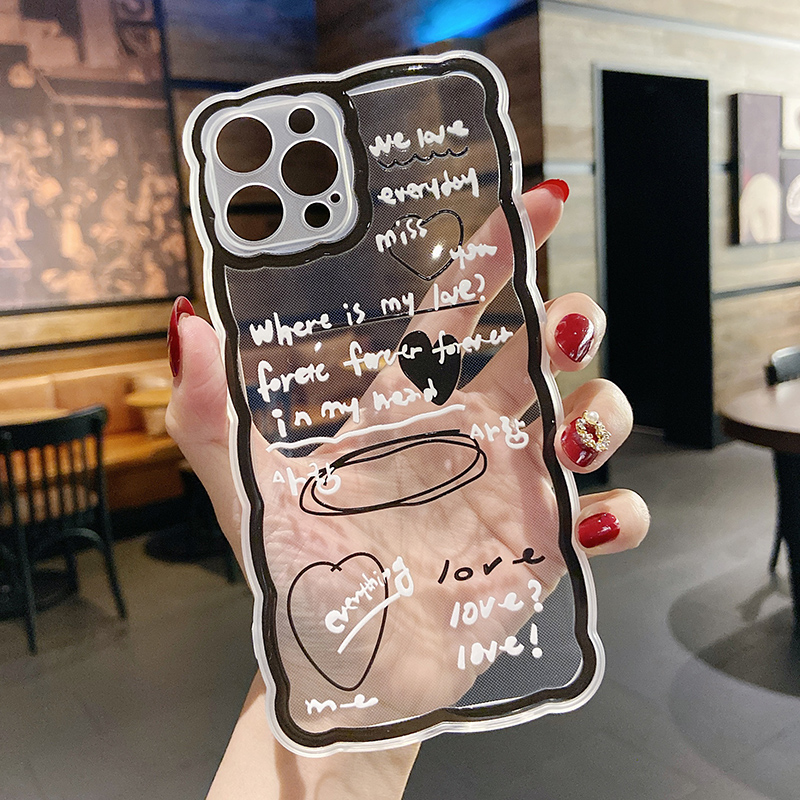 we love
everyday
miss
you
Where is my love?
foreré forever forever
in my head
사랑
사랑
everything
love
love?
love!
me